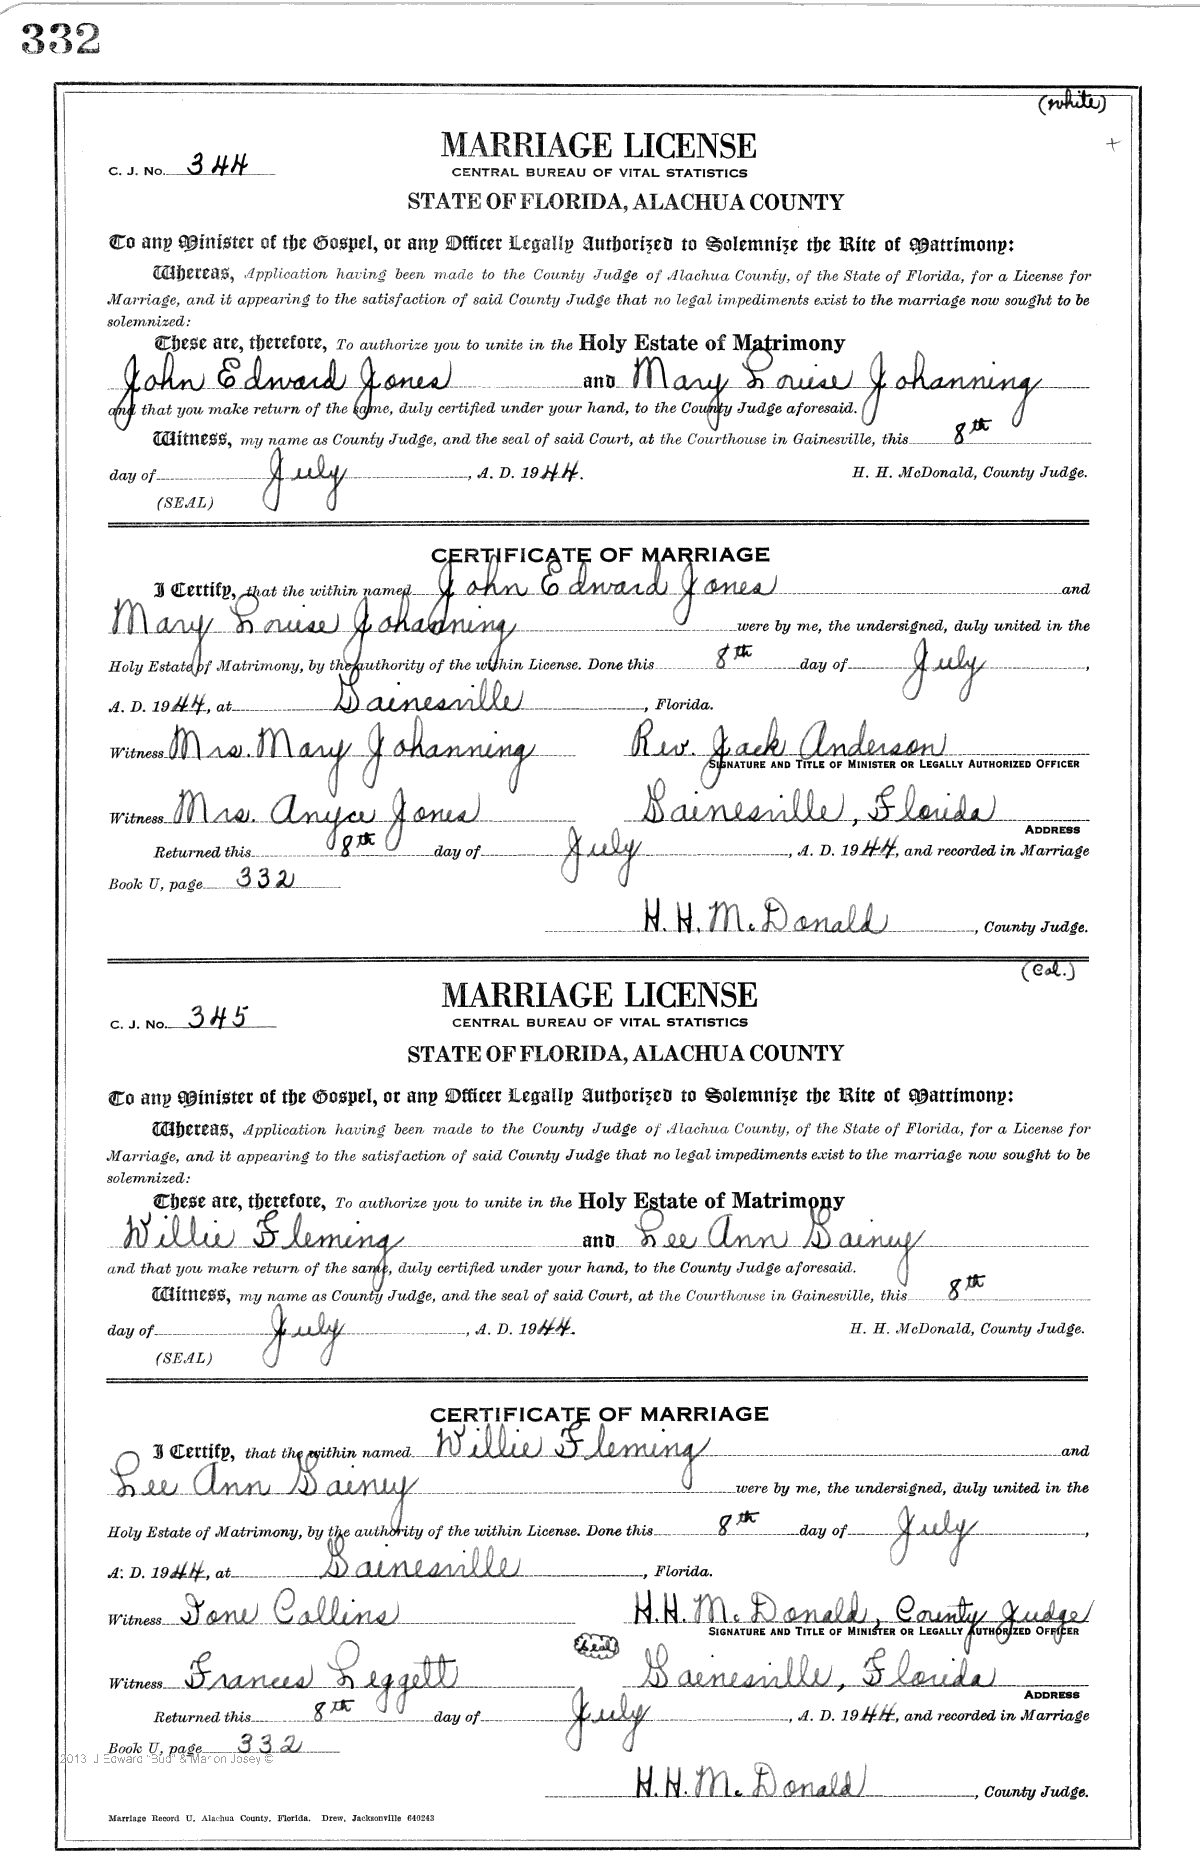 332
(white)
+
MARRIAGE LICENSE
C. J. No. 344
CENTRAL BUREAU OF VITAL STATISTICS
STATE OF FLORIDA, ALACHUA COUNTY
To any Minister of the Gospel, or any Officer Legally Authorized to Solemnize the Rite of Matrimony:
Whereas, Application having been made to the County Judge of Alachua County, of the State of Florida, for a License for
Marriage, and it appearing to the satisfaction of said County Judge that no legal impediments exist to the marriage now sought to be
solemnized:
These are, therefore, To authorize you to unite in the Holy Estate of Matrimony
John Edward Jones and Mary Louise Johanning
and that you make return of the same, duly certified under your hand, to the County Judge aforesaid.
Witness, my name as County Judge, and the seal of said Court, at the Courthouse in Gainesville, this 8th
day of July, A. D. 1944. H. H. McDonald, County Judge.
(SEAL)
CERTIFICATE OF MARRIAGE
I Certify, that the within named John Edward Jones and
Mary Louise Johanning were by me, the undersigned, duly united in the
Holy Estate of Matrimony, by the authority of the within License. Done this 8th day of July,
A. D. 1944, at Gainesville, Florida.
Witness Mrs. Mary Johanning Rev. Jack Anderson
SIGNATURE AND TITLE OF MINISTER OR LEGALLY AUTHORIZED OFFICER
Witness Mrs. Anyce Jones Gainesville, Florida
ADDRESS
Returned this 8th day of July, A. D. 1944, and recorded in Marriage
Book U, page 332
H. H. McDonald, County Judge.
(Col.)
MARRIAGE LICENSE
C. J. No. 345
CENTRAL BUREAU OF VITAL STATISTICS
STATE OF FLORIDA, ALACHUA COUNTY
To any Minister of the Gospel, or any Officer Legally Authorized to Solemnize the Rite of Matrimony:
Whereas, Application having been made to the County Judge of Alachua County, of the State of Florida, for a License for
Marriage, and it appearing to the satisfaction of said County Judge that no legal impediments exist to the marriage now sought to be
solemnized:
These are, therefore, To authorize you to unite in the Holy Estate of Matrimony
Willie Fleming and Lee Ann Gainey
and that you make return of the same, duly certified under your hand, to the County Judge aforesaid.
Witness, my name as County Judge, and the seal of said Court, at the Courthouse in Gainesville, this 8th
day of July, A. D. 1944. H. H. McDonald, County Judge.
(SEAL)
CERTIFICATE OF MARRIAGE
I Certify, that the within named Willie Fleming and
Lee Ann Gainey were by me, the undersigned, duly united in the
Holy Estate of Matrimony, by the authority of the within License. Done this 8th day of July,
A. D. 1944, at Gainesville, Florida.
Witness Ione Collins H. H. McDonald, County Judge
SIGNATURE AND TITLE OF MINISTER OR LEGALLY AUTHORIZED OFFICER
(Seal)
Witness Frances Leggett Gainesville, Florida
ADDRESS
Returned this 8th day of July, A. D. 1944, and recorded in Marriage
Book U, page 332
2013 J Edward "Bud" & Marion Josey ©
H. H. McDonald, County Judge.
Marriage Record U, Alachua County, Florida. Drew, Jacksonville 640243